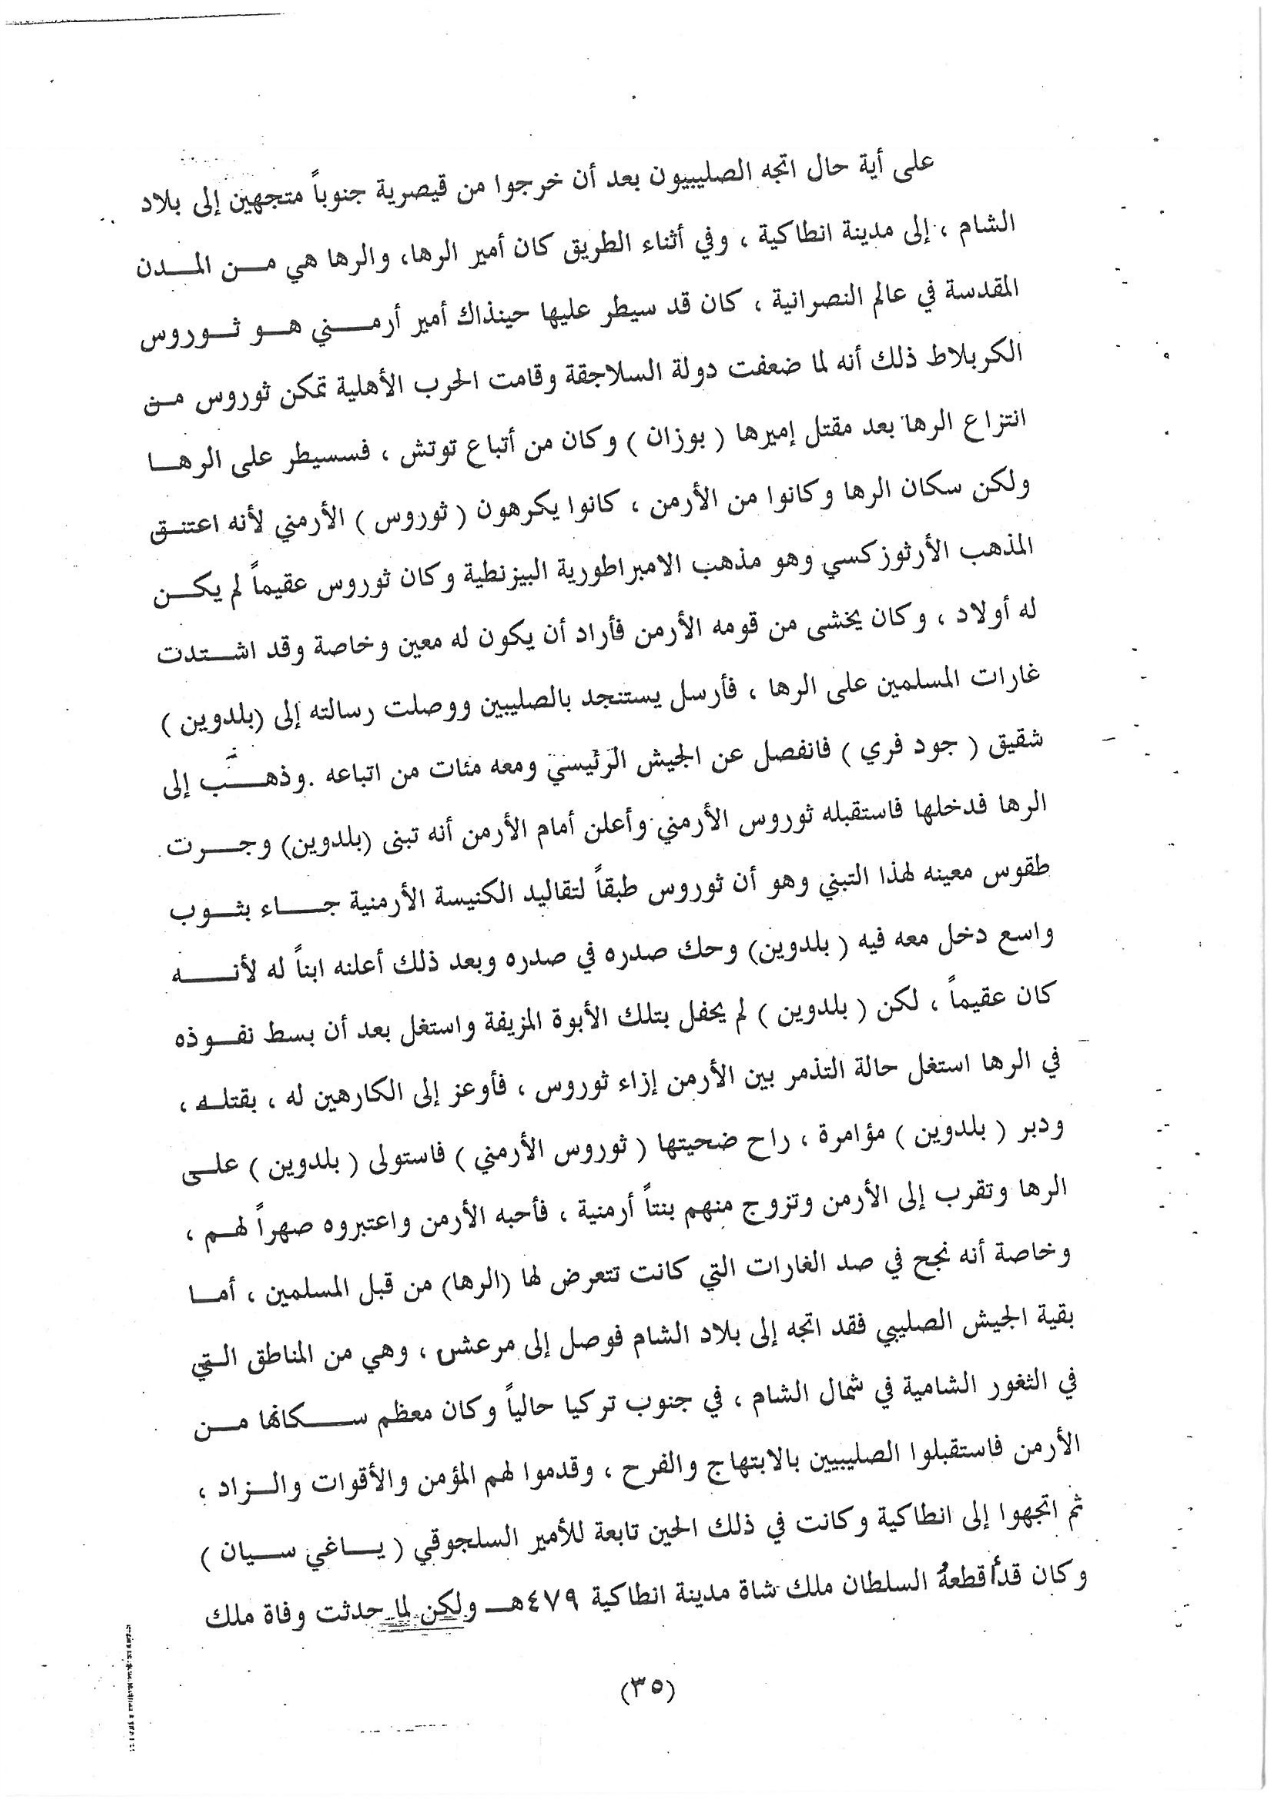 على أية حال اتجه الصليبيون بعد أن خرجوا من قيصرية جنوباً متجهين إلى بلاد
الشام ، إلى مدينة انطاكية ، وفي أثناء الطريق كان أمير الرها، والرها هي مـــن المـــدن
المقدسة في عالم النصرانية ، كان قد سيطر عليها حينذاك أمير أرمـــني هـــو ثـــوروس
الكربلاط ذلك أنه لما ضعفت دولة السلاجقة وقامت الحرب الأهلية تمكن ثوروس مـن
انتزاع الرها بعد مقتل إميرها ( بوزان ) وكان من أتباع توتش ، فسسيطر على الرهـــا
ولكن سكان الرها وكانوا من الأرمن ، كانوا يكرهون ( ثوروس ) الأرمني لأنه اعتنـق
المذهب الأرثوزكسي وهو مذهب الامبراطورية البيزنطية وكان ثوروس عقيماً لم يكـــن
له أولاد ، وكان يخشى من قومه الأرمن فأراد أن يكون له معين وخاصة وقد اشـــتدت
غارات المسلمين على الرها ، فأرسل يستنجد بالصليبين ووصلت رسالته إلى (بلدوين )
شقيق ( جود فري ) فانفصل عن الجيش الرئيسي ومعه مئات من اتباعه .وذهـــب إلى
الرها فدخلها فاستقبله ثوروس الأرمني وأعلن أمام الأرمن أنه تبنى (بلدوين) وجـــرت
طقوس معينه لهذا التبني وهو أن ثوروس طبقاً لتقاليد الكنيسة الأرمنية جـــاء بثـــوب
واسع دخل معه فيه ( بلدوين) وحك صدره في صدره وبعد ذلك أعلنه ابناً له لأنـــه
كان عقيماً ، لكن ( بلدوين ) لم يحفل بتلك الأبوة المزيفة واستغل بعد أن بسط نفـوذه
في الرها استغل حالة التذمر بين الأرمن إزاء ثوروس ، فأوعز إلى الكارهين له ، بقتلـه ،
ودبر ( بلدوين ) مؤامرة ، راح ضحيتها ( ثوروس الأرمني ) فاستولى ( بلدوين ) علـى
الرها وتقرب إلى الأرمن وتزوج منهم بنتاً أرمنية ، فأحبه الأرمن واعتبروه صهراً لهـم ،
وخاصة أنه نجح في صد الغارات التي كانت تتعرض لها (الرها) من قبل المسلمين ، أمـا
بقية الجيش الصليبي فقد اتجه إلى بلاد الشام فوصل إلى مرعش ، وهي من المناطق الـتي
في الثغور الشامية في شمال الشام ، في جنوب تركيا حالياً وكان معظم ســـكانها مـــن
الأرمن فاستقبلوا الصليبيين بالابتهاج والفرح ، وقدموا لهم المؤمن والأقوات والـــزاد ،
ثم اتجهوا إلى انطاكية وكانت في ذلك الحين تابعة للأمير السلجوقي ( يـــاغي ســـيان )
وكان قد أقطعهُ السلطان ملك شاة مدينة انطاكية ٤٧٩هـــ ولكن لما حدثت وفاة ملك
(٣٥)